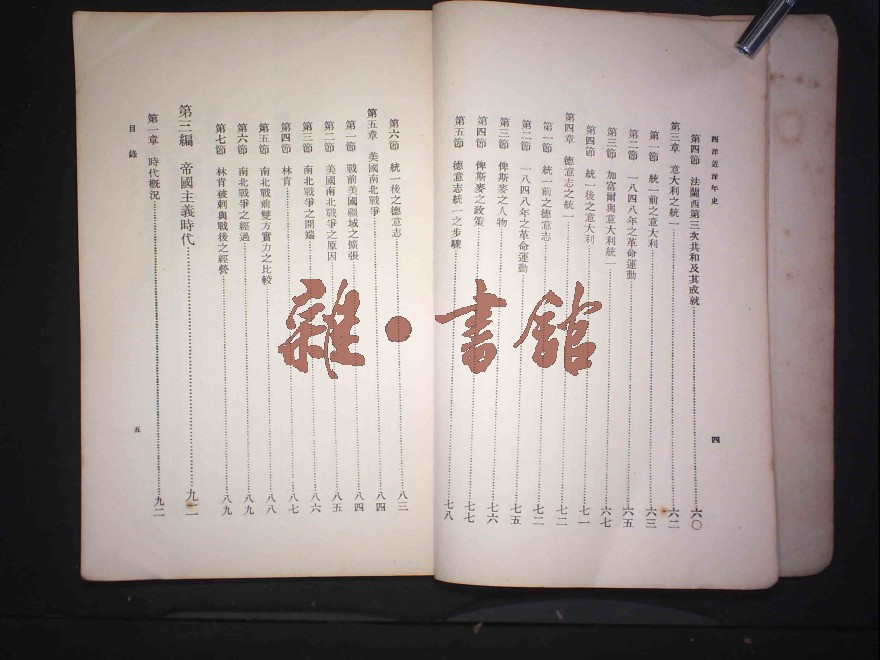 西洋近世年史
四
第四節 法蘭西第三次共和及其成就……六〇
第三章 意大利之統一……六二
第一節 統一前之意大利……六三
第二節 一八四八年之革命運動……六五
第三節 加富爾與意大利統一……六七
第四節 統一後之意大利……七一
第四章 德意志之統一……七二
第一節 統一前之德意志……七二
第二節 一八四八年之革命運動……七五
第三節 俾斯麥之人物……七六
第四節 俾斯麥之政策……七七
第五節 德意志統一之步驟……七八
第六節 統一後之德意志……八三
第五章 美國南北戰爭……八四
第一節 戰前美國疆域之擴張……八四
第二節 美國南北戰爭之原因……八五
第三節 南北戰爭之開端……八六
第四節 林肯……八七
第五節 南北戰前雙方實力之比較……八八
第六節 南北戰爭之經過……八九
第七節 林肯被刺與戰後之經營……八九
第三編 帝國主義時代……九二
第一章 時代概況……九二
目錄
五
雜·書館